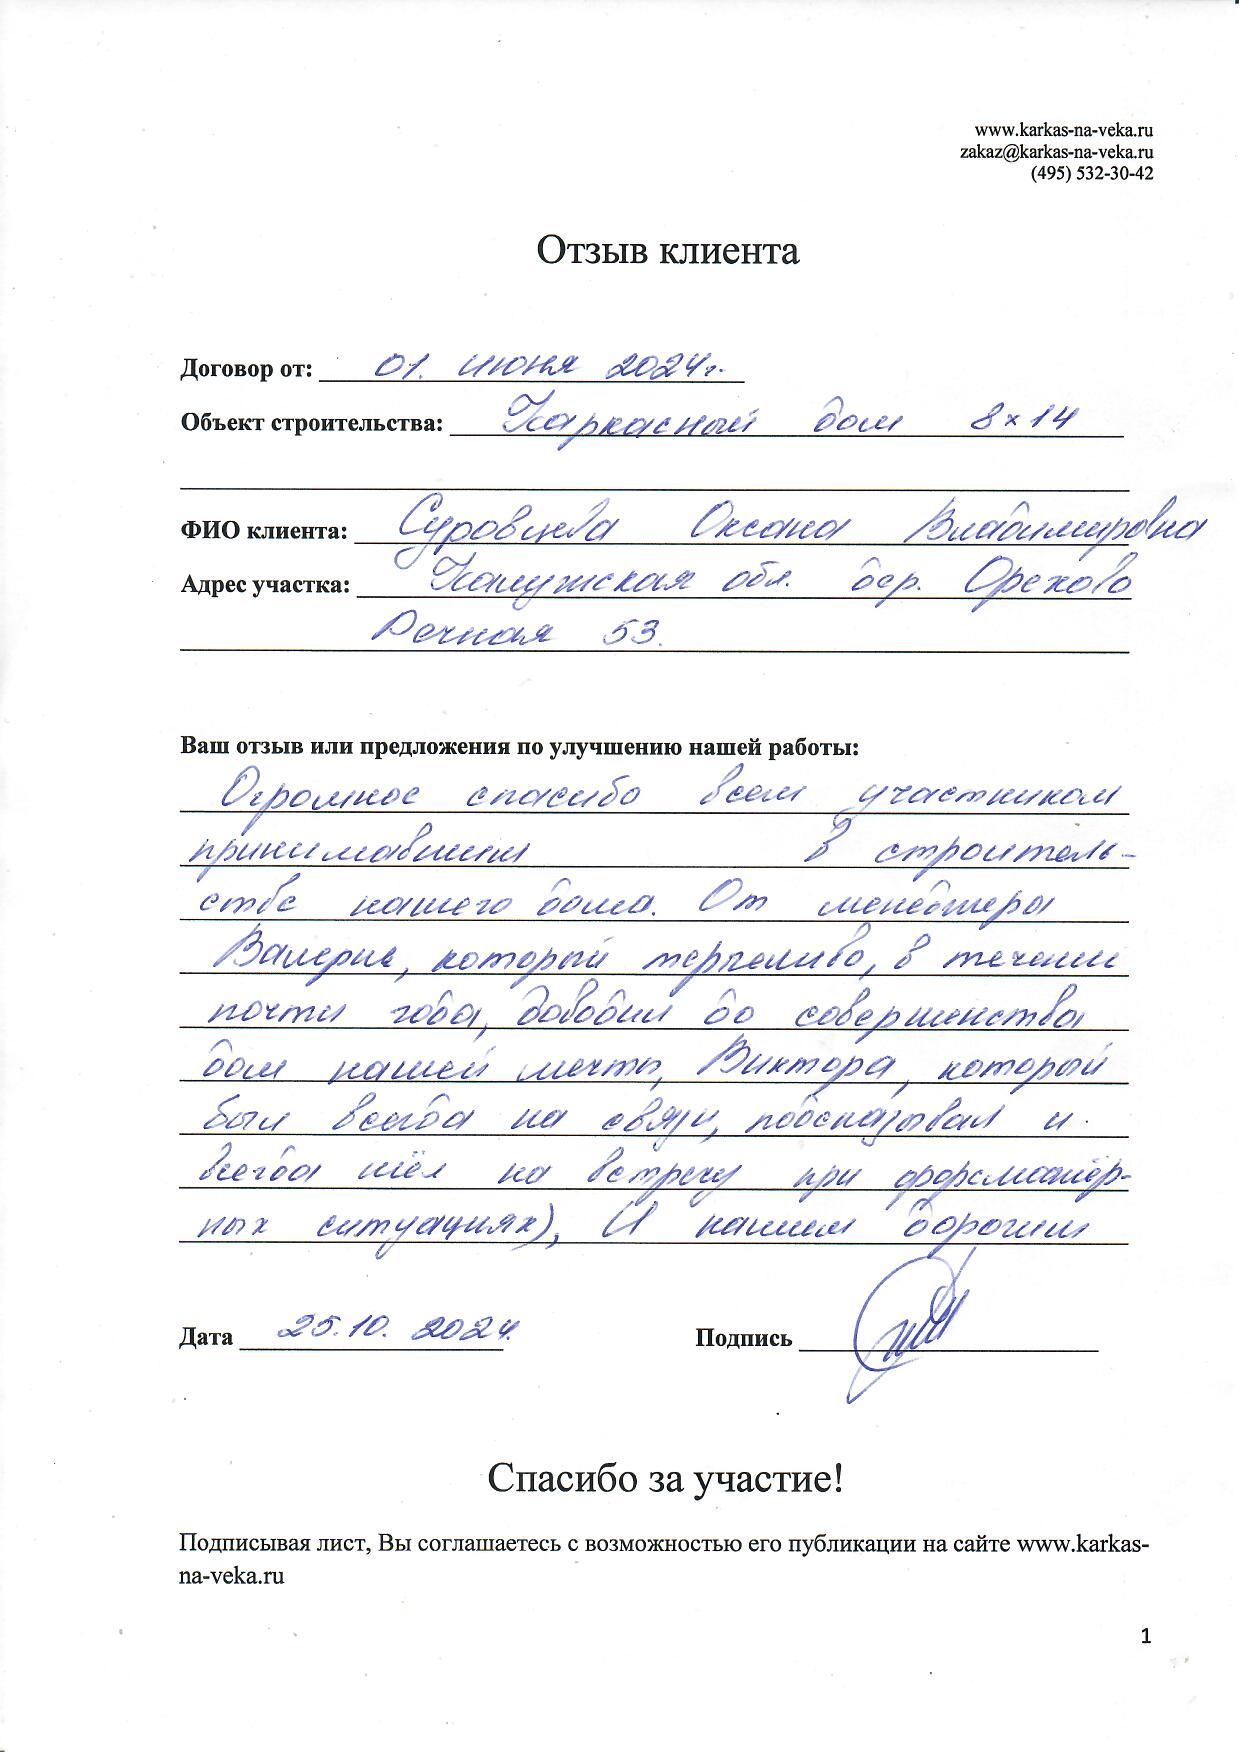 www.karkas-na-veka.ru
zakaz@karkas-na-veka.ru
(495) 532-30-42
Отзыв клиента
Договор от: 01. июня 2024г.
Объект строительства: Каркасный дом 8х14
ФИО клиента: Суровцева Оксана Владимировна
Адрес участка: Калужская обл. дер. Орехово
Речная 53.
Ваш отзыв или предложения по улучшению нашей работы:
Огромное спасибо всем участником
принимавшим в строитель-
стве нашего дома. От менеджера
Валерия, который терпеливо, в течении
почти года, доводил до совершенства
дом нашей мечты, Виктора, который
был всегда на связи, подсказывал и
всегда шёл на встречу при форсмажёр-
ных ситуациях), И нашим дорогим
Дата 25.10. 2024г.
Подпись
Спасибо за участие!
Подписывая лист, Вы соглашаетесь с возможностью его публикации на сайте www.karkas-
na-veka.ru
1